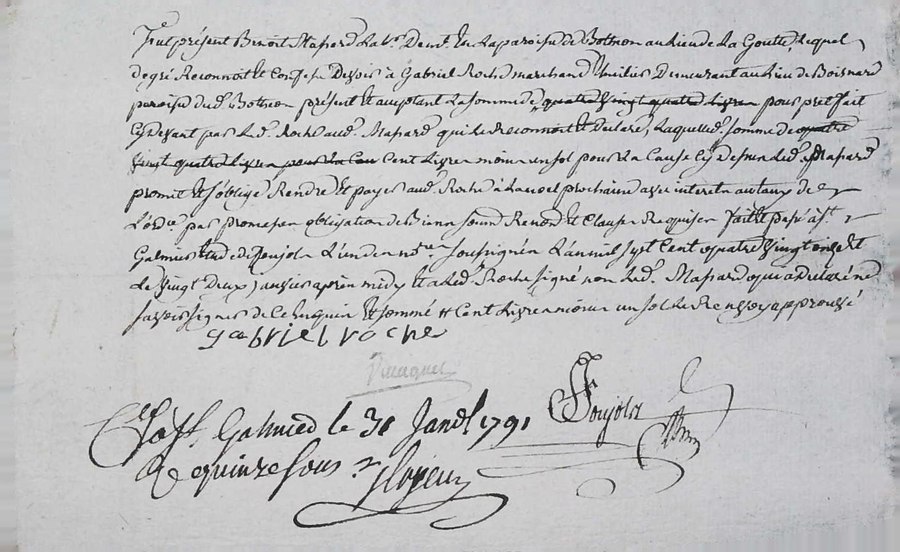 Fut présent Benoit Massard Lab.r Demt. En La paroisse de Bothéon au Lieu de La Goutte, Lequel
de gré Reconnoit Et Confesse Devoir à Gabriel Roche marchand Demeurant au Lieu de Boisnard
paroisse dud. Bothéon présent Et acceptant La somme de quatre vingt quatre Livres pour pret fait
Cy devant par Led. Roche aud. Massard qui Le Reconnoit Et Declare, Laquelle d. somme de quatre
vingt quatre Livres pour La Cau Cent Livres moins un sol pour La Cause Cy dessus Led. Massard
promet Et s'oblige Rendre Et payer aud. Roche à La noel prochaine avec interets au taux de
L'ord.ce par promesses obligation de Biens soum.d Renon.d Et Clauses Requises fait Et passé à St.
Galmier Etude de Poujols L'un des no.res soussignés L'an mil sept Cent quatre vingt onze Et
Le vingt Deux Janvier après midy Et a Led. Roche signé non Led. Massard qui a Déclaré ne
savoir signer de Ce Enquis Et sommé Cent Livres moins un sol Le Renvoy approuvé
gabriel roche
Poujols
St. Galmier le 31 Janv. 1791
R quinze sous